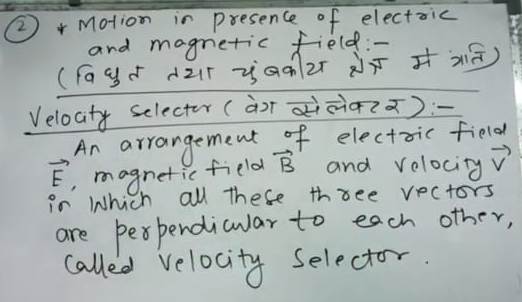 ② * Motion in presence of electric
and magnetic field:-
(विधुत तथा चुंबकीय क्षेत्र में गति)
Velocity Selector (वेग सेलेक्टर):-
An arrangement of electric field
E⃗, magnetic field B⃗ and velocity V⃗
in which all these three vectors
are perpendicular to each other,
called velocity Selector.